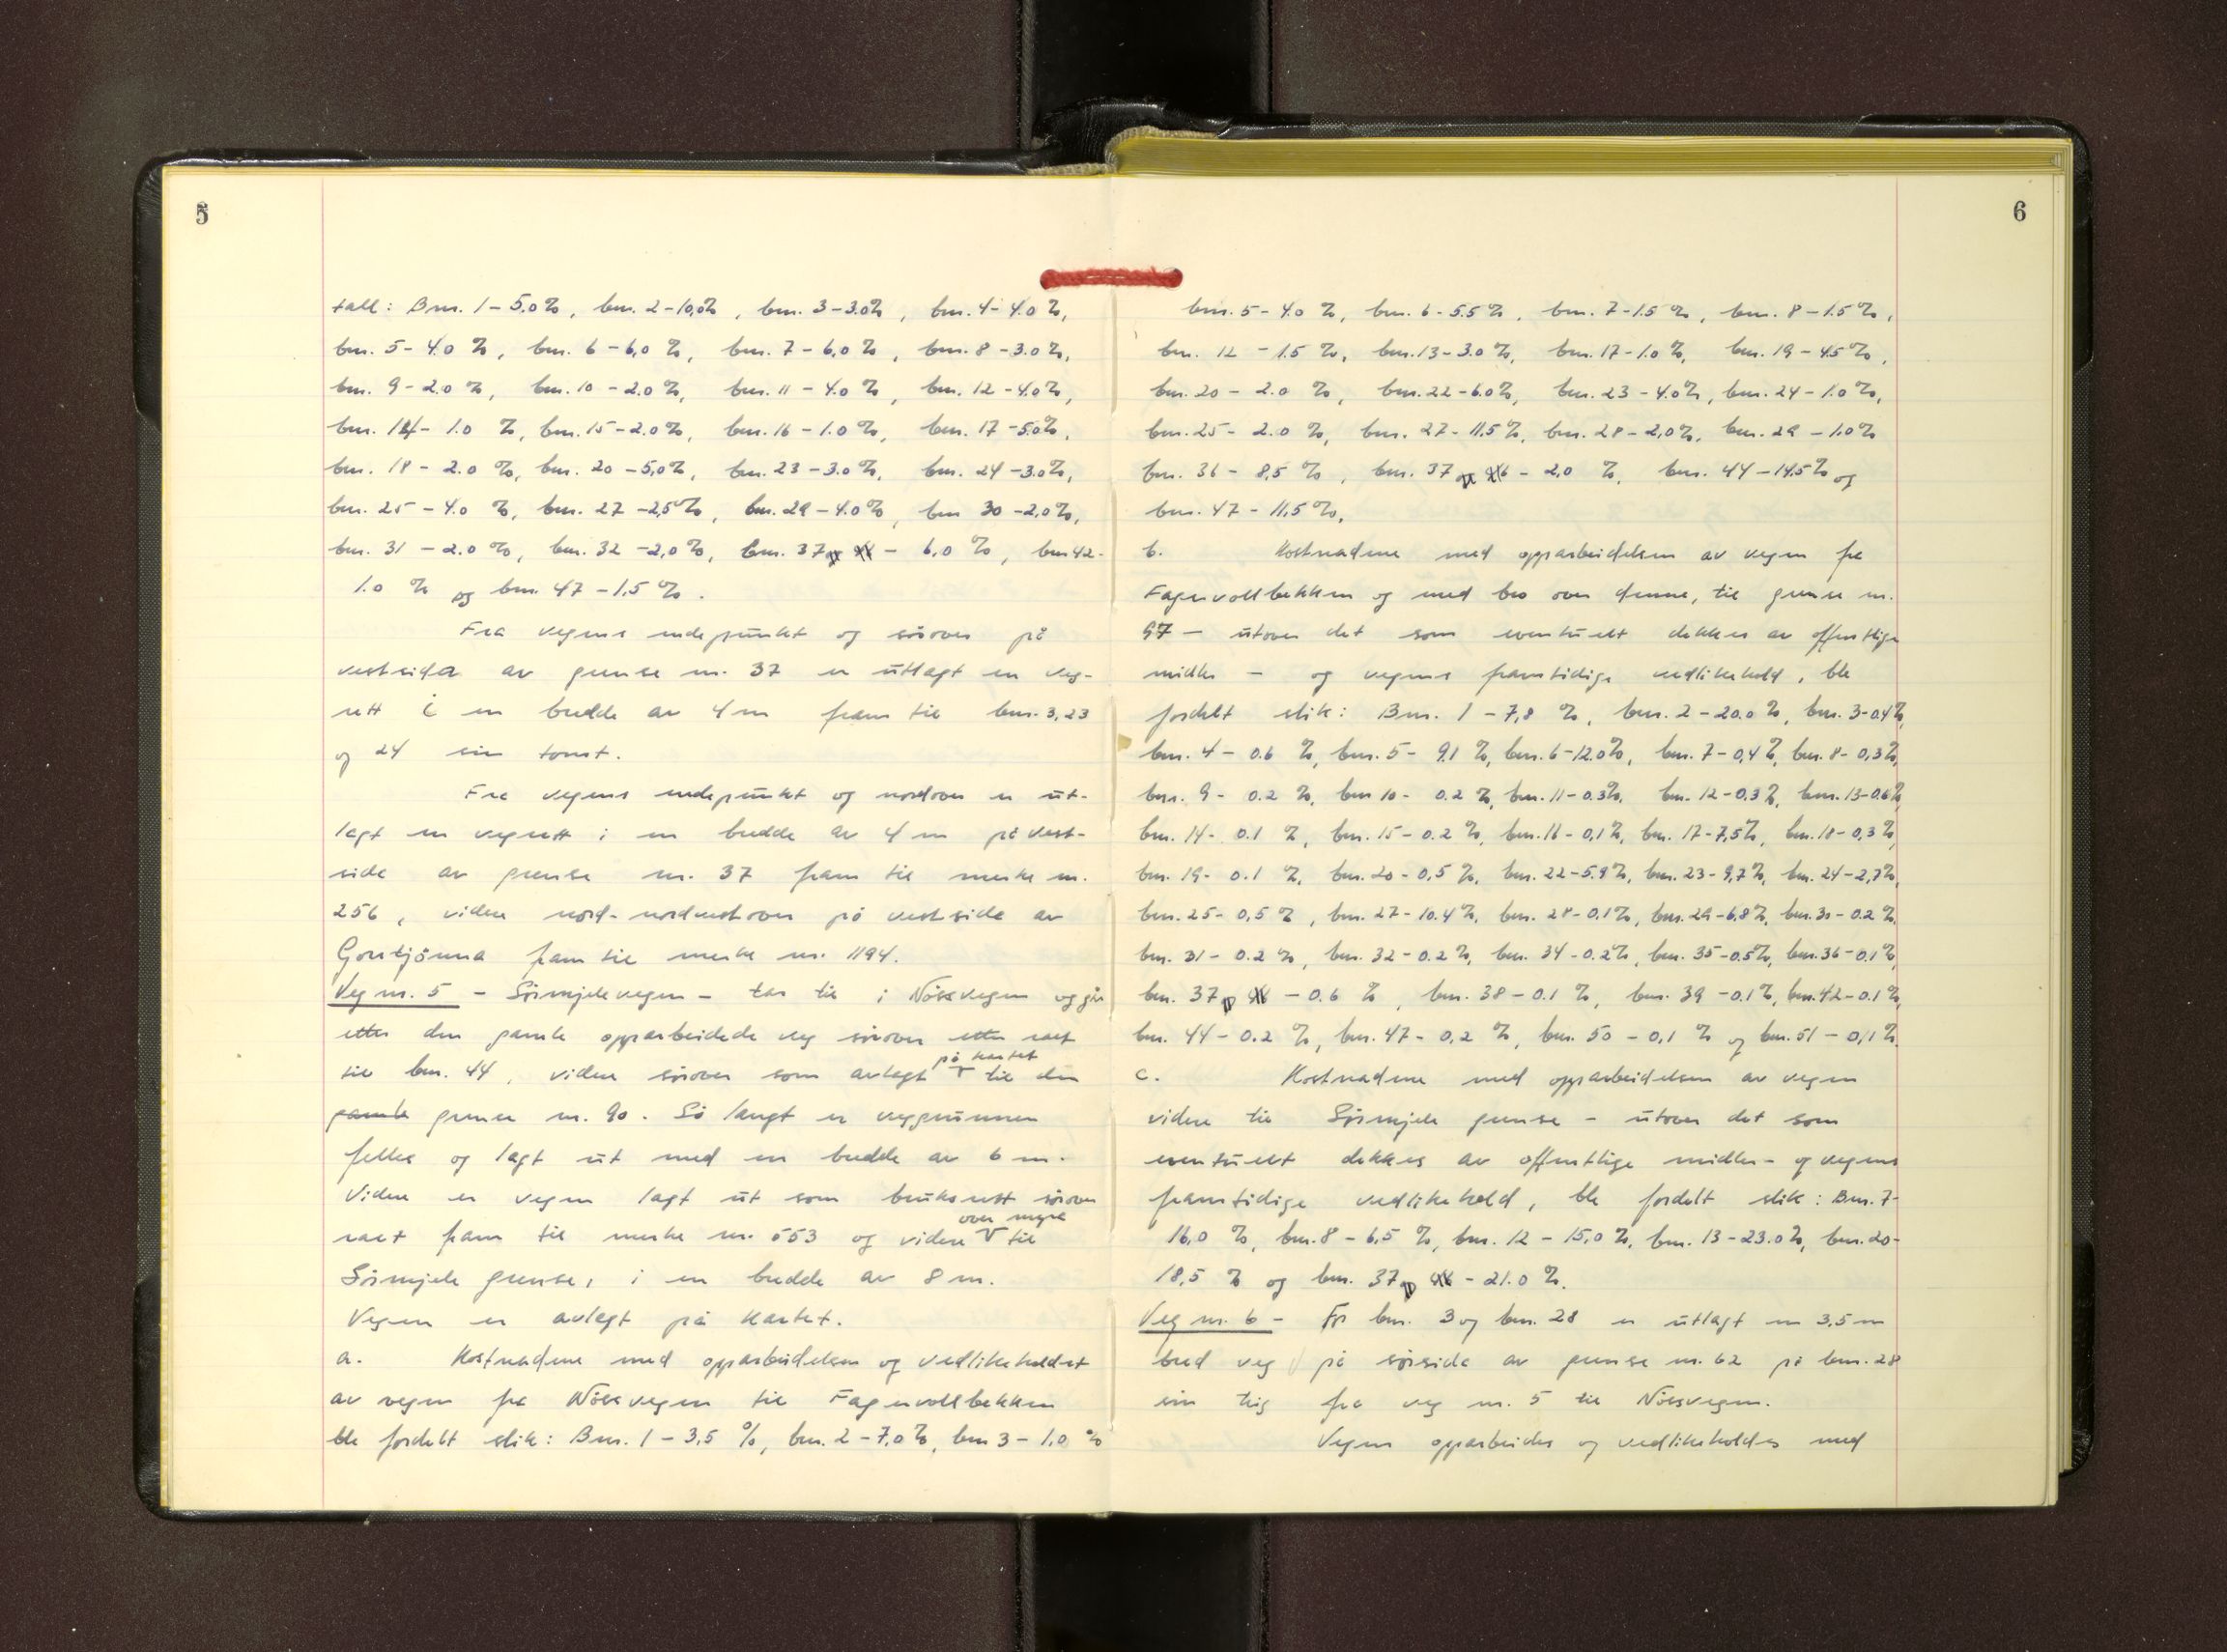 5
tall: Bnr. 1 - 5.0 %, bnr. 2 - 10,0 %, bnr. 3 - 3.0 %, bnr. 4 - 4.0 %,
bnr. 5 - 4.0 %, bnr. 6 - 6,0 %, bnr. 7 - 6,0 %, bnr. 8 - 3.0 %,
bnr. 9 - 2.0 %, bnr. 10 - 2.0 %, bnr. 11 - 4.0 %, bnr. 12 - 4.0 %,
bnr. 14 - 1.0 %, bnr. 15 - 2.0 %, bnr. 16 - 1.0 %, bnr. 17 - 5.0 %,
bnr. 18 - 2.0 %, bnr. 20 - 5,0 %, bnr. 23 - 3.0 %, bnr. 24 - 3.0 %,
bnr. 25 - 4.0 %, bnr. 27 - 2,5 %, bnr. 29 - 4.0 %, bnr 30 - 2,0 %,
bnr. 31 - 2.0 %, bnr. 32 - 2,0 %, bnr. 37 - 6,0 %, bnr 42 -
1.0 % og bnr. 47 - 1,5 %.
Fra vegens endepunkt og sörover på
vestsida av grense nr. 37 er utlagt en veg-
rett i en bredde av 4 m fram til bnr. 3, 23
og 24 sin tomt.
Fra vegens endepunkt og nordover er ut-
lagt en vegrett i en bredde av 4 m på vest-
side av grense nr. 37 fram til merke nr.
256, videre nord-nordvestover på vestside av
Gorrtjönna fram til merke nr. 1194.
Veg nr. 5 - Sörmjelevegen - tar til i Nössvegen og går
etter den gamle opparbeidede veg sörover etter rast
til bnr. 44, videre sörover som avlagt på kartet til den
gamle grense nr. 90. Så langt er veggrunnen
felles og lagt ut med en bredde av 6 m.
Videre er vegen lagt ut som bruksrett sörover
rast fram til merke nr. 553 og videre over myra til
Sörmjele grense, i en bredde av 8 m.
Vegen er avlagt på kartet.
a. Kostnadene med opparbeidelsen og vedlikeholdet
av vegen fra Nössvegen til Fagervollbekken
ble fordelt slik: Bnr. 1 - 3,5 %, bnr. 2 - 7,0 %, bnr 3 - 1,0 %
6
bnr. 5 - 4.0 %, bnr. 6 - 5.5 %, bnr. 7 - 1.5 %, bnr. 8 - 1.5 %,
bnr. 12 - 1.5 %, bnr. 13 - 3.0 %, bnr. 17 - 1.0 %, bnr. 19 - 4.5 %,
bnr. 20 - 2.0 %, bnr. 22 - 6.0 %, bnr. 23 - 4.0 %, bnr. 24 - 1.0 %,
bnr. 25 - 2.0 %, bnr. 27 - 11,5 %, bnr. 28 - 2,0 %, bnr. 29 - 1.0 %
bnr. 36 - 8,5 %, bnr. 37 - 2,0 %, bnr. 44 - 14.5 % og
bnr. 47 - 11,5 %.
b. Kostnadene med opparbeidelsen av vegen fra
Fagervollbekken og med bro over denne, til grense nr.
97 - utover det som eventuelt dekkes av offentlige
midler - og vegens framtidige vedlikehold, ble
fordelt slik: Bnr. 1 - 7,8 %, bnr. 2 - 20.0 %, bnr. 3 - 0.4 %,
bnr. 4 - 0.6 %, bnr. 5 - 9.1 %, bnr. 6 - 12.0 %, bnr. 7 - 0,4 %, bnr. 8 - 0,3 %,
bnr. 9 - 0.2 %, bnr 10 - 0.2 %, bnr. 11 - 0.3 %, bnr. 12 - 0.3 %, bnr. 13 - 0.6 %,
bnr. 14 - 0.1 %, bnr. 15 - 0.2 %, bnr. 16 - 0,1 %, bnr. 17 - 7,5 %, bnr. 18 - 0,3 %,
bnr. 19 - 0.1 %, bnr. 20 - 0,5 %, bnr. 22 - 5.9 %, bnr. 23 - 9,7 %, bnr. 24 - 2,7 %,
bnr. 25 - 0,5 %, bnr. 27 - 10.4 %, bnr. 28 - 0.1 %, bnr. 29 - 6,8 %, bnr. 30 - 0.2 %,
bnr. 31 - 0.2 %, bnr. 32 - 0.2 %, bnr. 34 - 0.2 %, bnr. 35 - 0.5 %, bnr. 36 - 0.1 %,
bnr. 37 - 0.6 %, bnr. 38 - 0.1 %, bnr. 39 - 0.1 %, bnr. 42 - 0.1 %,
bnr. 44 - 0.2 %, bnr. 47 - 0,2 %, bnr. 50 - 0,1 % og bnr. 51 - 0,1 %.
c. Kostnadene med opparbeidelsen av vegen
videre til Sörmjele grense - utover det som
eventuelt dekkes av offentlige midler - og vegens
framtidige vedlikehold, ble fordelt slik: Bnr. 7 -
16,0 %, bnr. 8 - 6,5 %, bnr. 12 - 15,0 %, bnr. 13 - 23.0 %, bnr. 20 -
18,5 % og bnr. 37 - 21.0 %.
Veg nr. 6 - For bnr. 3 og bnr. 28 er utlagt en 3,5 m
bred veg på sörside av grense nr. 62 på bnr. 28
sin teig fra veg nr. 5 til Nössvegen.
Vegen opparbeides og vedlikeholdes med